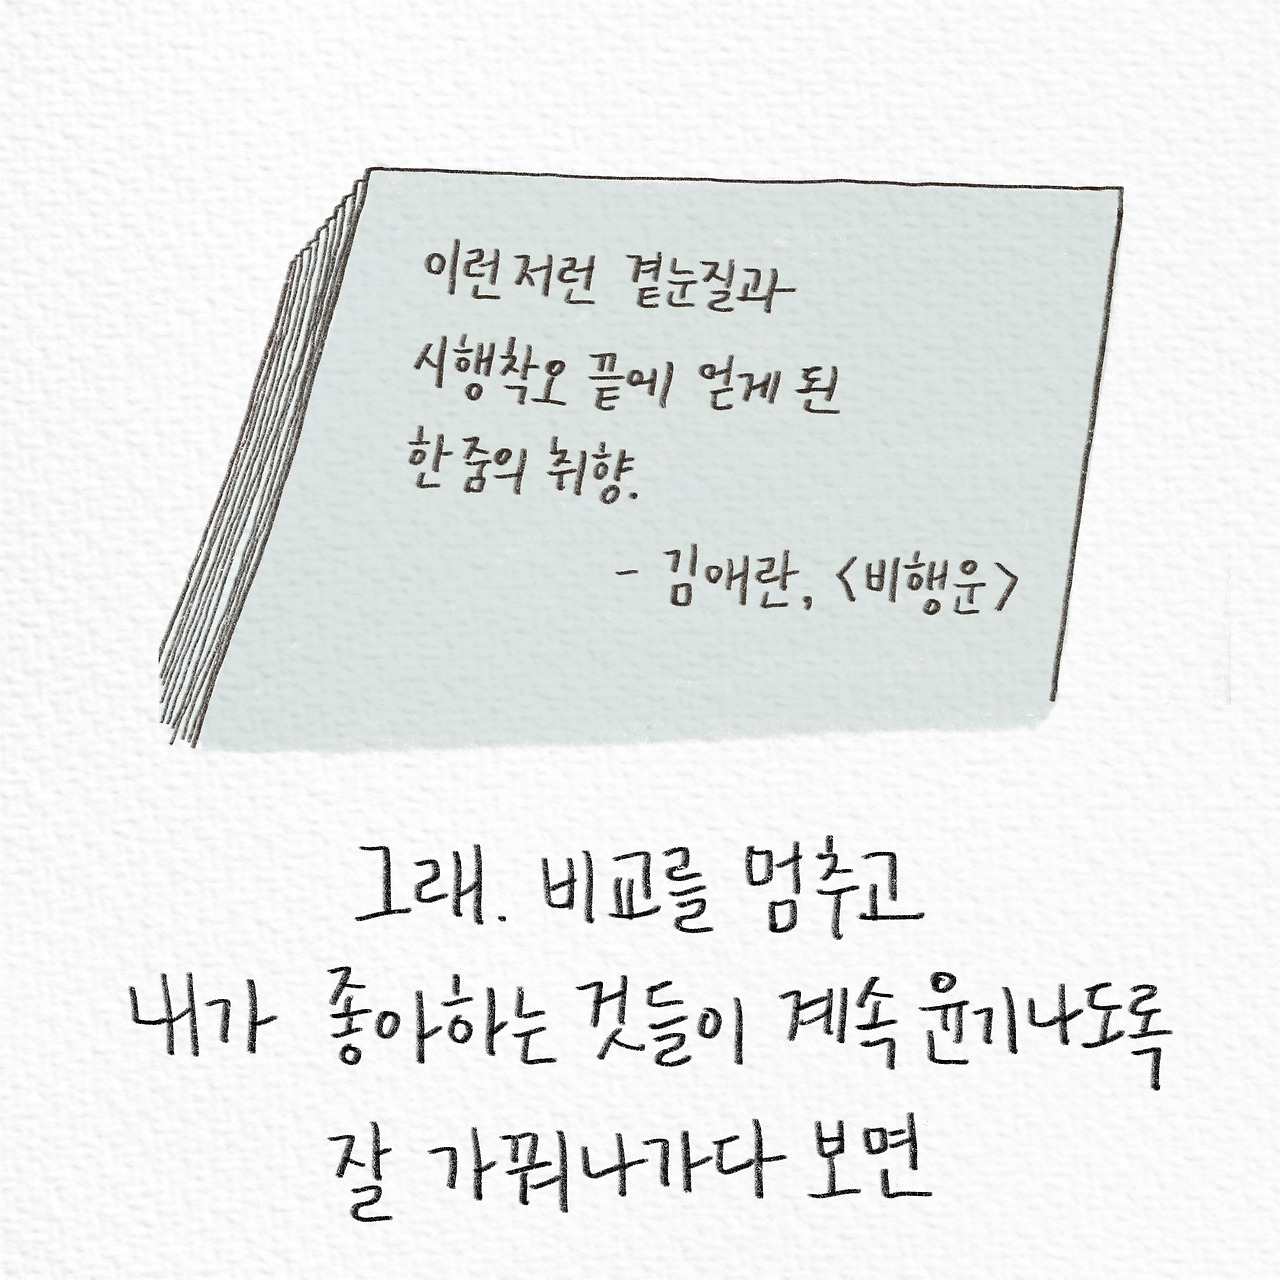 이런 저런 곁눈질과
시행착오 끝에 얻게 된
한 줌의 취향.
- 김애란, <비행운>
그래. 비교를 멈추고
내가 좋아하는 것들이 계속 윤기나도록
잘 가꿔나가다 보면